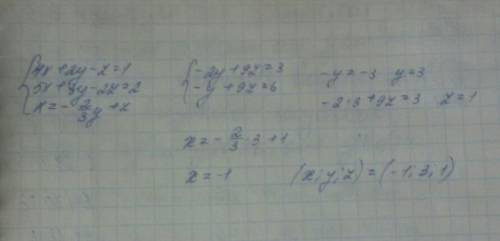 4x + 2y - z = 1
5x + 3y - 2z = 2
x = - 2/3 y + z
-2y + 9z = 3
-y + 9z = 6
-y = -3 y = 3
-2·3 + 9z = 3 z = 1
x = - 2/3 · 3 + 1
x = -1
(x; y; z) = (-1; 3; 1)